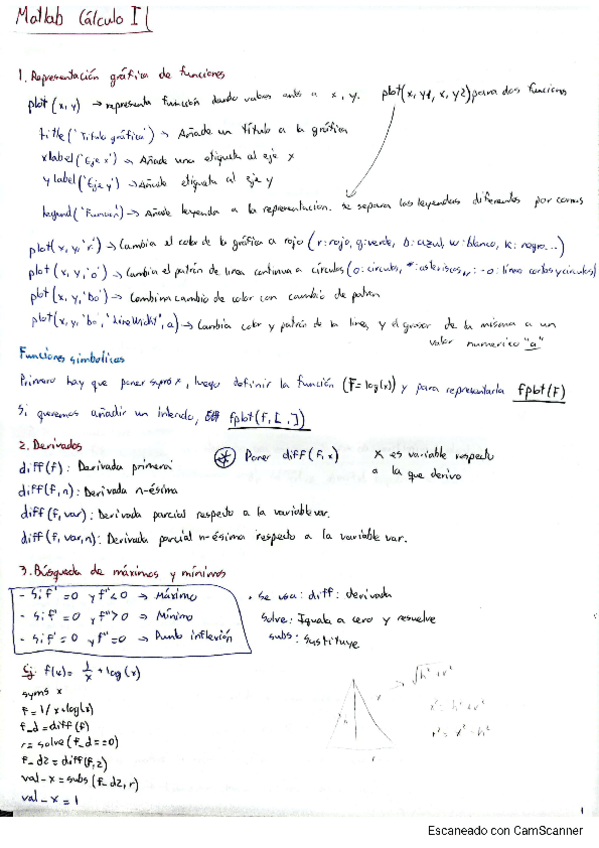 Matlab Cálculo I
1. Representación gráfica de funciones
plot (x, y) → representa función dando valores ants a x, y. plot(x, y1, x, y2) para dos funciones
title('Título gráfica') → Añade un título a la gráfica
xlabel('Eje x') → Añade una etiqueta al eje x
ylabel('Eje y') → Añade etiqueta al eje y
legend('Función') → Añade leyenda a la representación. Se separa las leyendas diferentes por comas
plot(x, y, 'r') → Cambia el color de la gráfica a rojo (r: rojo, g: verde, b: azul, w: blanco, k: negro...)
plot (x, y, 'o') → Cambia el patrón de línea continua a círculos (o: círculos, *: asteriscos, : -o: línea cortes y círculos)
plot (x, y, 'bo') → Combina cambio de color con cambio de patrón
plot(x, y, 'bo', 'LineWidht', a) → Cambia color y patrón de la línea, y el grosor de la misma a un
valor numérico "a"
Funciones simbólicas
Primero hay que poner syms x, luego definir la función (F=log(x)) y para representarla fplot(F)
Si queremos añadir un intervalo, fplot(f, [ , ])
2. Derivadas
diff(f): Derivada primera
diff(f, n): Derivada n-ésima
diff (f, var): Derivada parcial respecto a la variable var.
diff (f, var, n): Derivada parcial n-ésima respecto a la variable var.
* Poner diff (f, x) x es variable respecto
a la que derivo
3. Búsqueda de máximos y mínimos
- Si f' = 0 y f'' < 0 → Máximo
- Si f' = 0 y f'' > 0 → Mínimo
- Si f' = 0 y f'' = 0 → Punto inflexión
• Se usa: diff: derivada
solve: Iguala a cero y resuelve
subs: sustituye
Ej: f(x) = 1/x + log(x)
syms x
f = 1/x + log(x)
f_d = diff(f)
r = solve(f_d == 0)
f_d2 = diff(f, 2)
val_x = subs(f_d2, r)
val_x = 1
1
Escaneado con CamScanner